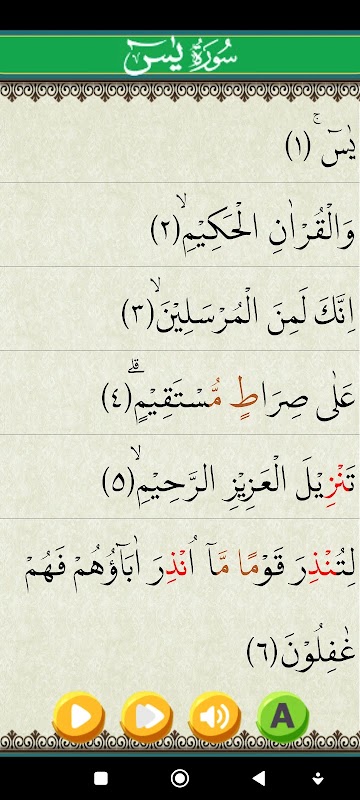 سُورَةُ يٰسٓ
يٰسٓ ۚ (١)
وَالْقُرْاٰنِ الْحَكِيْمِۙ (٢)
اِنَّكَ لَمِنَ الْمُرْسَلِيْنَۙ (٣)
عَلٰى صِرَاطٍ مُّسْتَقِيْمٍۗ (٤)
تَنْزِيْلَ الْعَزِيْزِ الرَّحِيْمِۙ (٥)
لِتُنْذِرَ قَوْمًا مَّآ اُنْذِرَ اٰبَاۤؤُهُمْ فَهُمْ
غٰفِلُوْنَ (٦)
A